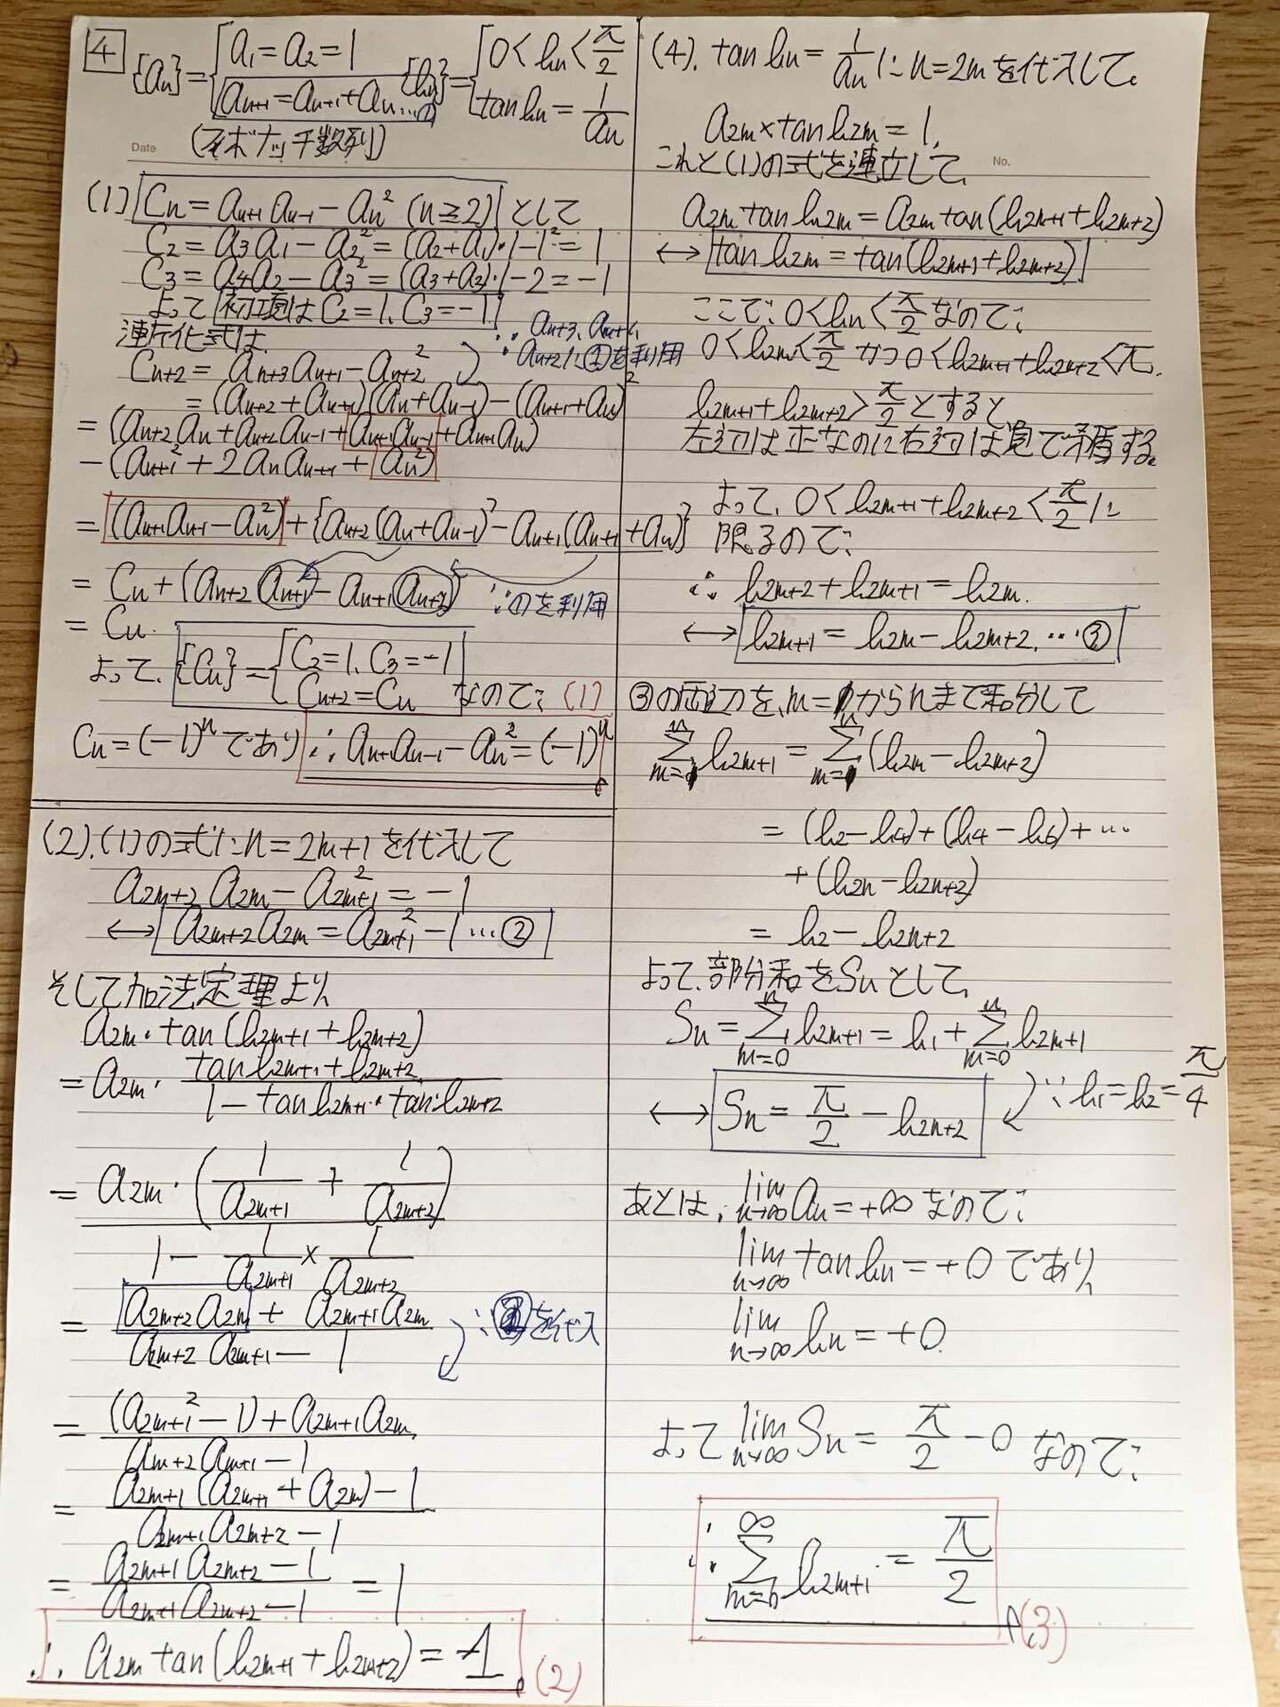 4
{an} = { a1 = a2 = 1
an+2 = an+1 + an …①
(フィボナッチ数列)
{bn} = { 0 < bn < π/2
tan bn = 1/an
Date
(1) Cn = an+1 an-1 - an² (n≧2) として
C2 = a3 a1 - a2² = (a2+a1)·1 - 1² = 1
C3 = a4 a2 - a3² = (a3+a2)·1 - 2² = -1
よって 初項は C2 = 1, C3 = -1
漸化式は
Cn+2 = an+3 an+1 - an+2²
∵ an+3, an+1,
an+2に①を利用
= (an+2 + an+1)(an + an-1) - (an+1 + an)²
= (an+2 an + an+2 an-1 + an+1 an-1 + an+1 an)
- (an+1² + 2an an+1 + an²)
= (an+1 an-1 - an²) + {an+2 (an + an-1) - an+1 (an+1 + an)}
= Cn + (an+2 an+1 - an+1 an+2) ∵①を利用
= Cn.
よって, {Cn} = { C2 = 1, C3 = -1
Cn+2 = Cn なので: (1)
Cn = (-1)ⁿ であり ∴ an+1 an-1 - an² = (-1)ⁿ
(2). (1)の式に n = 2m+1 を代入して
a2m+2 a2m - a2m+1² = -1
↔ a2m+2 a2m = a2m+1² - 1 …②
そして加法定理より,
a2m · tan(b2m+1 + b2m+2)
= a2m · tan b2m+1 + b2m+2 / 1 - tan b2m+1 · tan b2m+2
= a2m · (1/a2m+1 + 1/a2m+2) / 1 - 1/a2m+1 × 1/a2m+2
= a2m+2 a2m + a2m+1 a2m / a2m+2 a2m+1 - 1 ∵②を代入
= (a2m+1² - 1) + a2m+1 a2m / am+2 am+1 - 1
= a2m+1 (a2m+1 + a2m) - 1 / a2m+1 a2m+2 - 1
= a2m+1 a2m+2 - 1 / a2m+1 a2m+2 - 1 = 1
∴ a2m tan(b2m+1 + b2m+2) = 1 (2)
(4). tan bn = 1/an に n = 2m を代入して,
a2m × tan b2m = 1,
No.
これと(1)の式を連立して,
a2m tan b2m = a2m tan(b2m+1 + b2m+2)
↔ tan b2m = tan(b2m+1 + b2m+2)
ここで: 0 < bn < π/2 なので:
0 < b2m < π/2 かつ 0 < b2m+1 + b2m+2 < π.
b2m+1 + b2m+2 > π/2 とすると
左辺は正なのに右辺は負で矛盾する。
よって, 0 < b2m+1 + b2m+2 < π/2 に
限るので:
∴ b2m+2 + b2m+1 = b2m.
↔ b2m+1 = b2m - b2m+2. …③
③の両辺を, m = 1からnまで和分して
Σ[m=1→n] b2m+1 = Σ[m=1→n] (b2m - b2m+2)
= (b2 - b4) + (b4 - b6) + …
+ (b2n - b2n+2)
= b2 - b2n+2
よって, 部分和をSnとして,
Sn = Σ[m=0→n] b2m+1 = b1 + Σ[m=0→n] b2m+1
↔ Sn = π/2 - b2n+2 ∵ b1 = b2 = π/4
あとは, lim[n→∞] an = +∞ なので:
lim[n→∞] tan bn = +0 であり,
lim[n→∞] bn = +0
よって lim[n→∞] Sn = π/2 - 0 なので:
∴ Σ[m=0→∞] b2m+1 = π/2 (3)